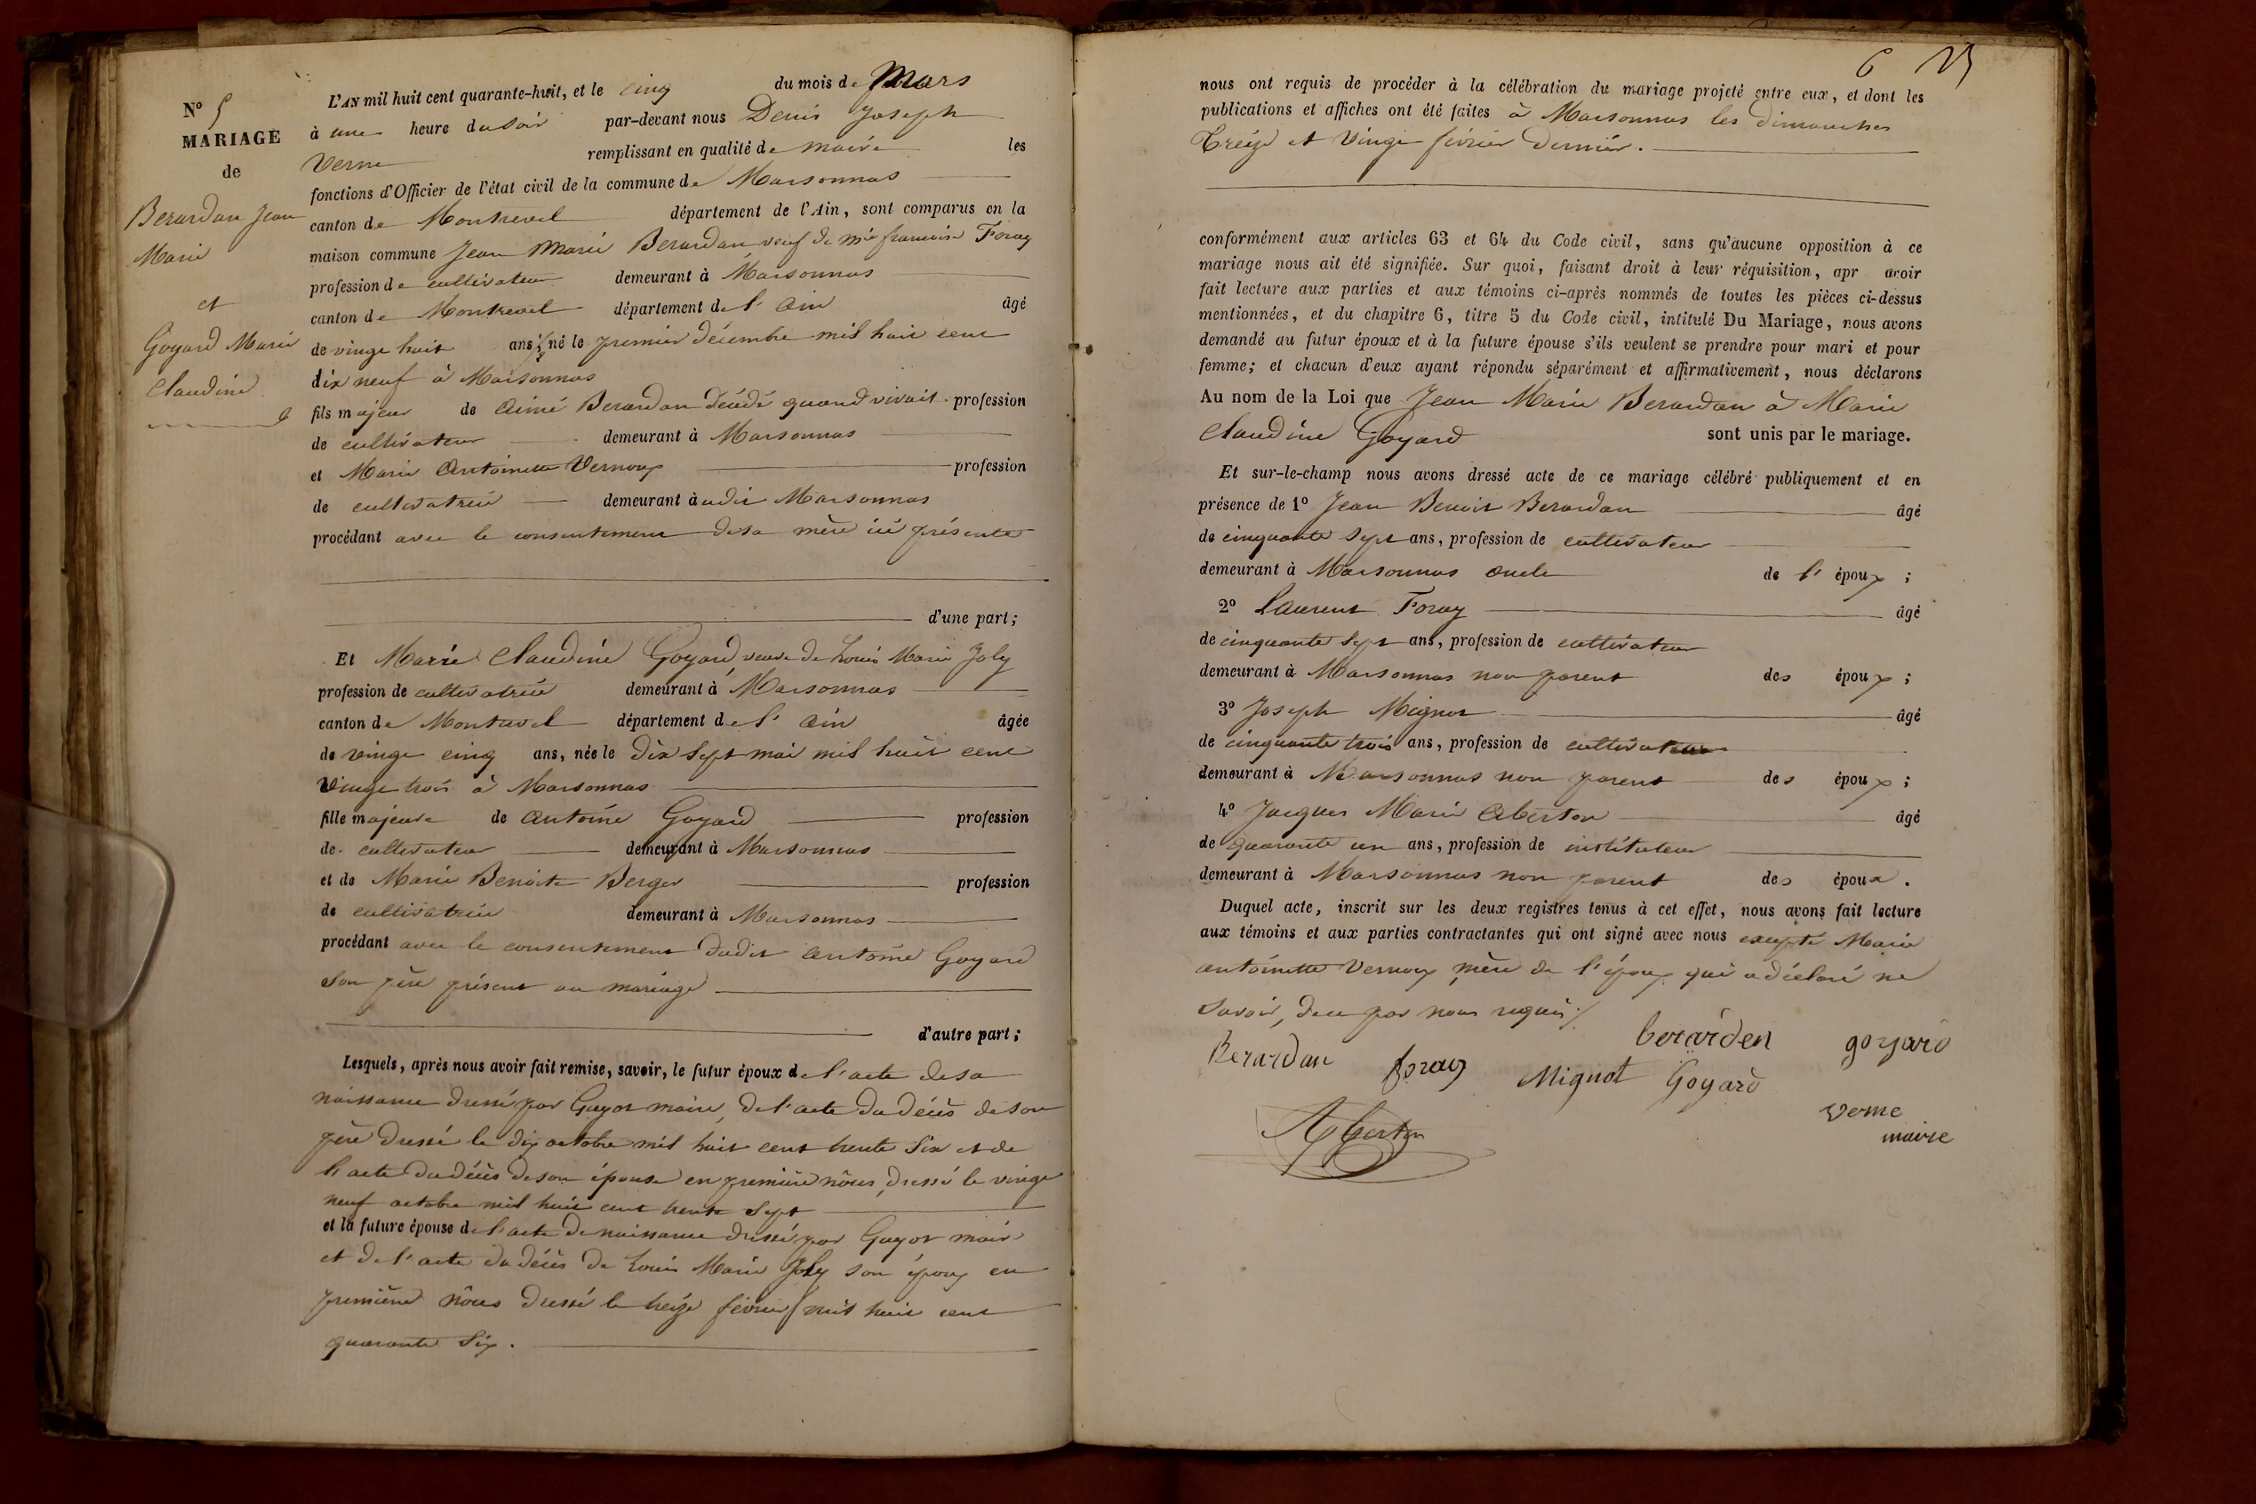 N° 5
MARIAGE
de
Berardan Jean
Marie
et
Goyard Marie
Claudine
L'AN mil huit cent quarante-huit, et le cinq du mois de Mars
à une heure du soir par-devant nous Denis Joseph
Verne remplissant en qualité de maire les
fonctions d'Officier de l'état civil de la commune de Marsonnas
canton de Montrevel département de l'Ain, sont comparus en la
maison commune Jean Marie Berardan veuf de Mie francoise Foray
profession de cultivateur demeurant à Marsonnas
canton de Montrevel département de l'Ain âgé
de vingt huit ans né le premier décembre mil huit cent
dix neuf à Marsonnas
fils majeur de Aimé Berardan décédé quand vivait profession
de cultivateur demeurant à Marsonnas
et Marie Antoinette Vernoux profession
de cultivatrice demeurant à udit Marsonnas
procédant avec le consentement de sa mère ici présente
d'une part;
Et Marie Claudine Goyard, veuve de Louis Marie Joly
profession de cultivatrice demeurant à Marsonnas
canton de Montrevel département de l'Ain âgée
de vingt cinq ans, née le dix sept mai mil huit cent
vingt trois à Marsonnas
fille majeure de Antoine Goyard profession
de cultivateur demeurant à Marsonnas
et de Marie Benoite Berger profession
de cultivatrice demeurant à Marsonnas
procédant avec le consentement dudit Antoine Goyard
son père présent au mariage
d'autre part;
Lesquels, après nous avoir fait remise, savoir, le futur époux de l'acte de sa
naissance dressé par Guyot maire, de l'acte du décès de son
père dressé le dix octobre mil huit cent trente six et de
l'acte du décès de son épouse en première nôces, dressé le vingt
neuf octobre mil huit cent trente sept
et la future épouse de l'acte de naissance dressé par Guyot maire
et de l'acte du décès de Louis Marie Joly son époux en
première nôces dressé le treize février mil huit cent
quarante six.
6
nous ont requis de procéder à la célébration du mariage projeté entre eux, et dont les
publications et affiches ont été faites à Marsonnas les dimanches
Treize et Vingt février dernier.
conformément aux articles 63 et 64 du Code civil, sans qu'aucune opposition à ce
mariage nous ait été signifiée. Sur quoi, faisant droit à leur réquisition, apr avoir
fait lecture aux parties et aux témoins ci-après nommés de toutes les pièces ci-dessus
mentionnées, et du chapitre 6, titre 5 du Code civil, intitulé Du Mariage, nous avons
demandé au futur époux et à la future épouse s'ils veulent se prendre pour mari et pour
femme; et chacun d'eux ayant répondu séparément et affirmativement, nous déclarons
Au nom de la Loi que Jean Marie Berardan à Marie
Claudine Goyard sont unis par le mariage.
Et sur-le-champ nous avons dressé acte de ce mariage célébré publiquement et en
présence de 1° Jean Benoit Berardan âgé
de cinquante sept ans, profession de cultivateur
demeurant à Marsonnas oncle de l' époux;
2° Laurent Foray âgé
de cinquante sept ans, profession de cultivateur
demeurant à Marsonnas non parent des époux;
3° Joseph Mignot âgé
de cinquante trois ans, profession de cultivateur
demeurant à Marsonnas non parent des époux;
4° Jacques Marie Aberton âgé
de quarante un ans, profession de instituteur
demeurant à Marsonnas non parent des époux.
Duquel acte, inscrit sur les deux registres tenus à cet effet, nous avons fait lecture
aux témoins et aux parties contractantes qui ont signé avec nous excepté Marie
antoinette Vernoux mère de l'époux qui a déclaré ne
savoir, de ce par nous requis
Berardan foray berarden goyard
Mignot Goyard
Verne
maire